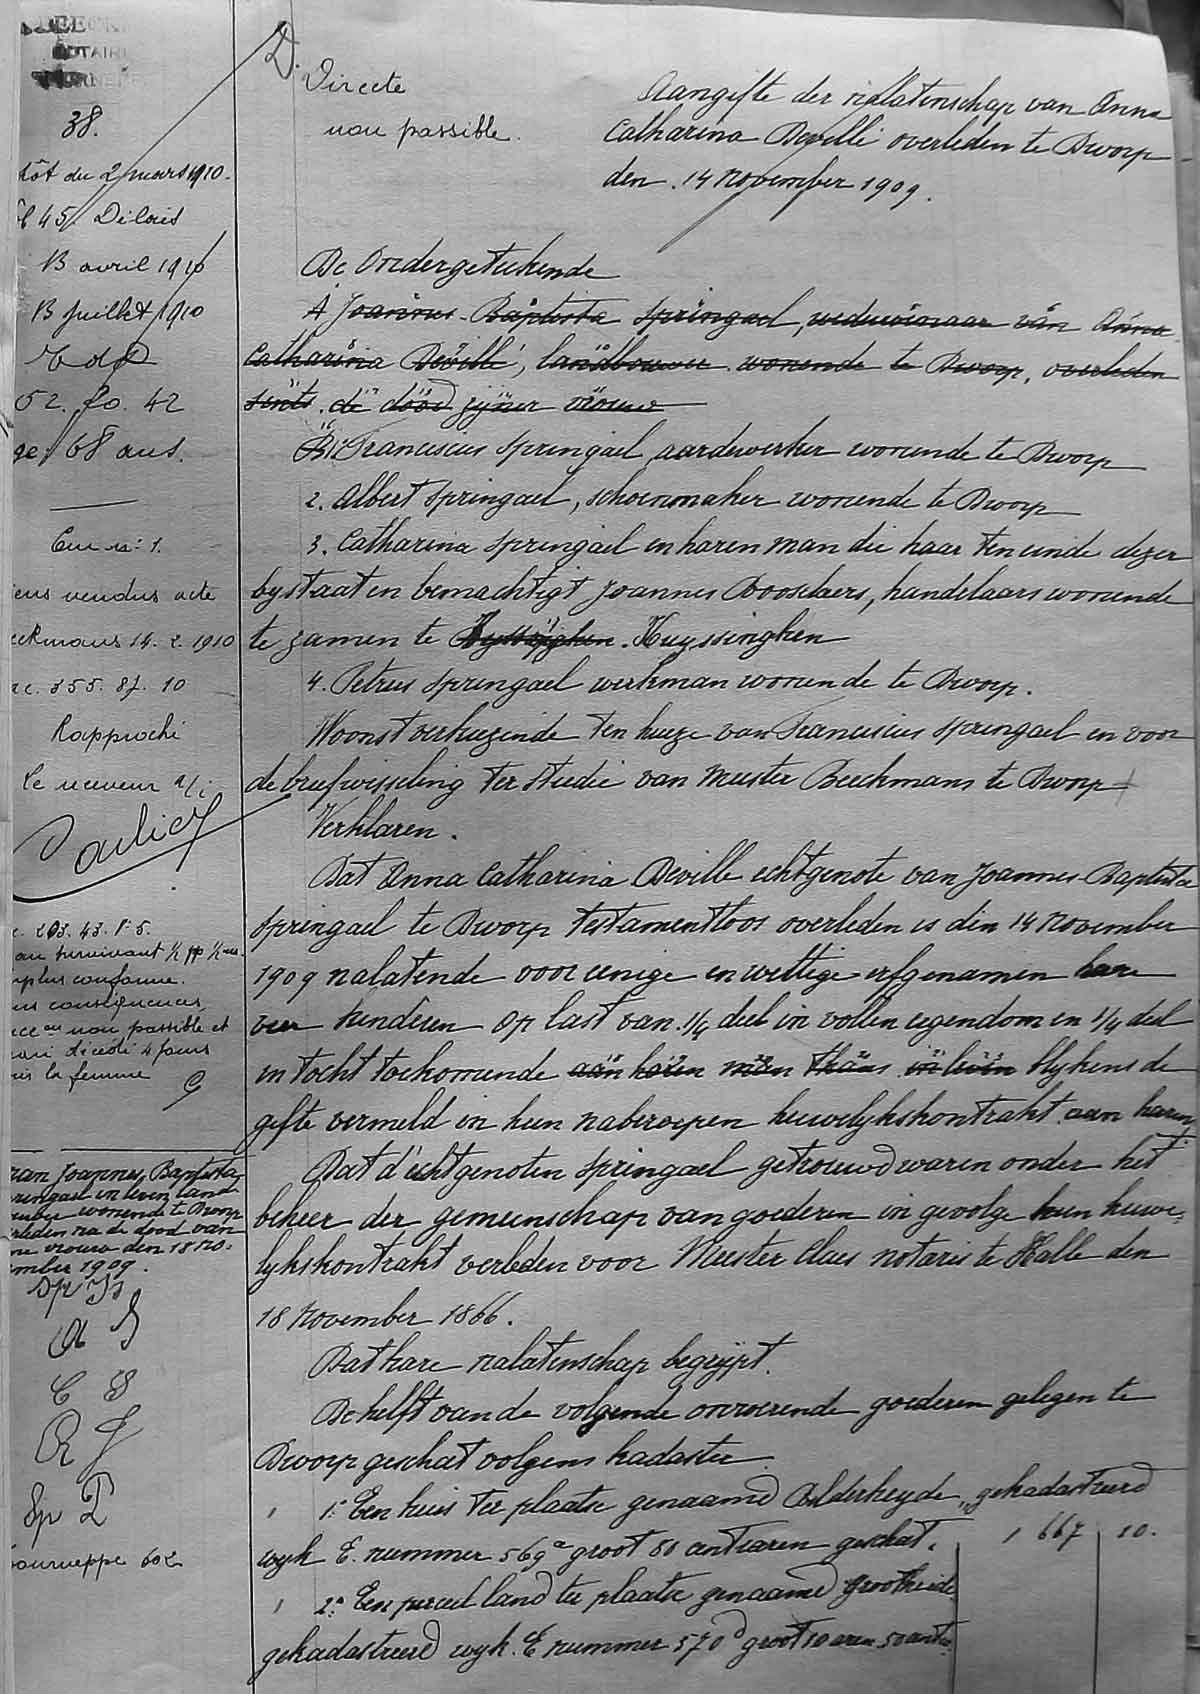 NOTAIRE
38.
tôt du 2 mars 1910.
45 Délais
13 avril 1910
13 juillet 1910
52. fo. 42
68 ans.
Em n° 1.
iens vendus acte
eckmans 14. 2. 1910
355. 87. 10
Rapproché
Le receveur a/i
203. 43. 1° 5.
au survivant 1/2 pp 1/2
plus conforme.
conséquences
non passible et
mari décédé 4 jours
la femme
Joannes Baptista
ringael in leven land
wonende te Dworp
rleden na de dood van
ne vrouw den 18 No-
ember 1909.
Sp
A S
C S
Sp
ourneppe 602
D.
Directe
non passible.
Aangifte der nalatenschap van Anna
Catharina Devillé overleden te Dworp
den 14 November 1909.
De Ondergeteekende
A Joannes-Baptista Springael weduwenaar van Anna
Catharina Devillé, landbouwer wonende te Dworp, overleden
sints de dood zijner vrouw
B. 1. Franciscus Springael aardewerker wonende te Dworp
2. Albert Springael, schoenmaker wonende te Dworp
3. Catharina Springael en haren man die haar ten einde dezer
bystaat en bemachtigt Joannes Booselaers, handelaars wonende
te zamen te Huyssinghen
4. Petrus Springael werkman wonende te Dworp.
Woonst verkiezende ten huize van Franciscus Springael en voor
de briefwisseling ter studie van Meester Beeckmans te Dworp
Verklaren.
Dat Anna Catharina Deville echtgenote van Joannes Baptista
Springael te Dworp testamentloos overleden is den 14 November
1909 nalatende voor eenige en wettige erfgenamen hare
vier kinderen op last van 1/4 deel in vollen eigendom en 1/4 deel
in tocht toekomende aan haren man thans in leven blykens de
gifte vermeld in hun naberoepen huwelykskontrakt aan haren
Dat d'echtgenoten Springael getrouwd waren onder het
beheer der gemeenschap van goederen in gevolge hun huwe-
lykskontrakt verleden voor Meester Claes notaris te Halle den
18 November 1866.
Dat hare nalatenschap begrijpt.
De helft van de volgende onroerende goederen gelegen te
Dworp geschat volgens kadaster
1° Een huis ter plaatse genaamd Solderheyde, gekadastreerd
wyk E. nummer 569a groot 80 centiaren geschat. 1 667 10.
2° Een perceel land ter plaatse genaamd Grootheide
gekadastreerd wyk E nummer 570d groot 10 aren 50 centia